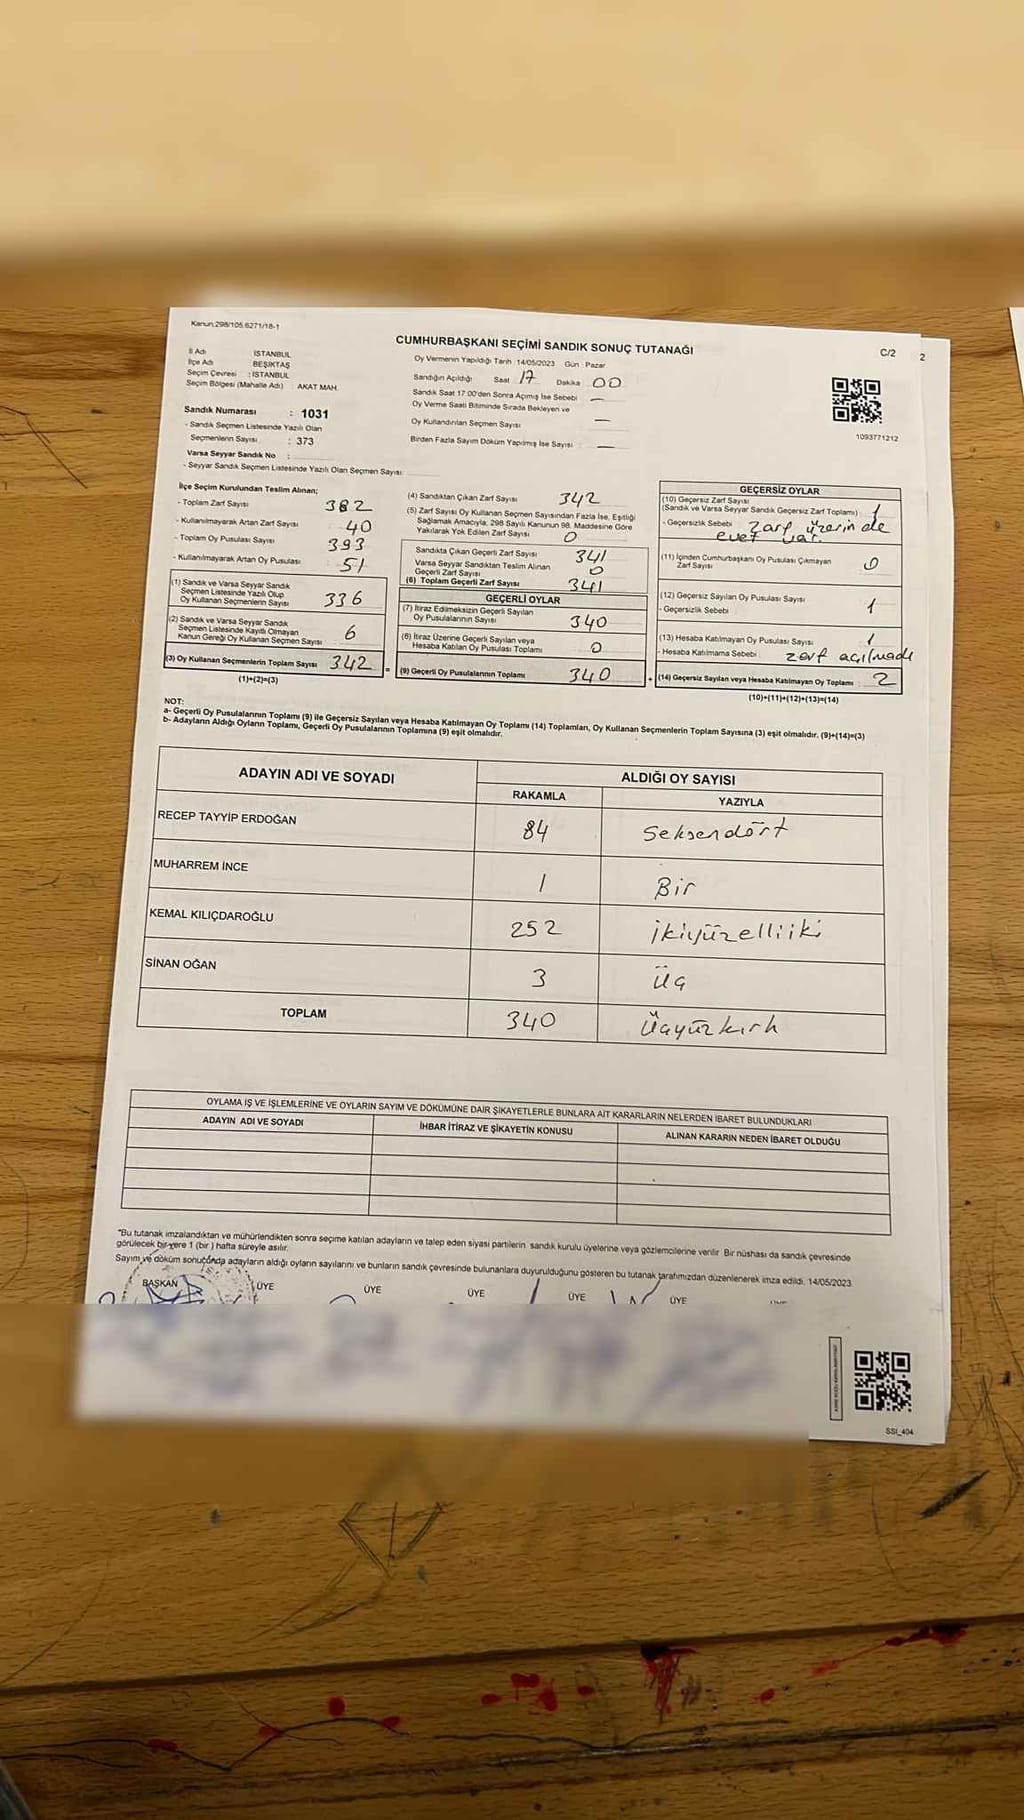 Kanun:298/105.6271/18-1
CUMHURBAŞKANI SEÇİMİ SANDIK SONUÇ TUTANAĞI
C/2
2
İl Adı : İSTANBUL
İlçe Adı : BEŞİKTAŞ
Seçim Çevresi : İSTANBUL
Seçim Bölgesi (Mahalle Adı) AKAT MAH.
Sandık Numarası : 1031
- Sandık Seçmen Listesinde Yazılı Olan
Seçmenlerin Sayısı : 373
Varsa Seyyar Sandık No :
- Seyyar Sandık Seçmen Listesinde Yazılı Olan Seçmen Sayısı:
Oy Vermenin Yapıldığı Tarih :14/05/2023 Gün : Pazar
Sandığın Açıldığı Saat 17 Dakika 00
Sandık Saat 17:00'den Sonra Açılmış İse Sebebi —
Oy Verme Saati Bitiminde Sırada Bekleyen ve
Oy Kullandırılan Seçmen Sayısı —
Birden Fazla Sayım Döküm Yapılmış İse Sayısı : —
1093771212
İlçe Seçim Kurulundan Teslim Alınan;
- Toplam Zarf Sayısı 382
- Kullanılmayarak Artan Zarf Sayısı 40
- Toplam Oy Pusulası Sayısı 393
- Kullanılmayarak Artan Oy Pusulası 51
(1) Sandık ve Varsa Seyyar Sandık
Seçmen Listesinde Yazılı Olup
Oy Kullanan Seçmenlerin Sayısı 336
(2) Sandık ve Varsa Seyyar Sandık
Seçmen Listesinde Kayıtlı Olmayan
Kanun Gereği Oy Kullanan Seçmen Sayısı 6
(3) Oy Kullanan Seçmenlerin Toplam Sayısı 342 =
(1)+(2)=(3)
(4) Sandıktan Çıkan Zarf Sayısı 342
(5) Zarf Sayısı Oy Kullanan Seçmen Sayısından Fazla İse, Eşitliği
Sağlamak Amacıyla, 298 Sayılı Kanunun 98. Maddesine Göre
Yakılarak Yok Edilen Zarf Sayısı 0
Sandıkta Çıkan Geçerli Zarf Sayısı 341
Varsa Seyyar Sandıktan Teslim Alınan
Geçerli Zarf Sayısı 0
(6) Toplam Geçerli Zarf Sayısı 341
GEÇERLİ OYLAR
(7) İtiraz Edilmeksizin Geçerli Sayılan
Oy Pusulalarının Sayısı 340
(8) İtiraz Üzerine Geçerli Sayılan veya
Hesaba Katılan Oy Pusulası Toplamı 0
(9) Geçerli Oy Pusulalarının Toplamı 340 +
GEÇERSİZ OYLAR
(10) Geçersiz Zarf Sayısı
(Sandık ve Varsa Seyyar Sandık Geçersiz Zarf Toplamı) 1
- Geçersizlik Sebebi zarf üzerinde
evet var.
(11) İçinden Cumhurbaşkanı Oy Pusulası Çıkmayan
Zarf Sayısı 0
(12) Geçersiz Sayılan Oy Pusulası Sayısı 1
- Geçersizlik Sebebi
(13) Hesaba Katılmayan Oy Pusulası Sayısı 1
- Hesaba Katılmama Sebebi : zarf açılmadı
(14) Geçersiz Sayılan veya Hesaba Katılmayan Oy Toplamı : 2
(10)+(11)+(12)+(13)=(14)
NOT:
a- Geçerli Oy Pusulalarının Toplamı (9) ile Geçersiz Sayılan veya Hesaba Katılmayan Oy Toplamı (14) Toplamları, Oy Kullanan Seçmenlerin Toplam Sayısına (3) eşit olmalıdır. (9)+(14)=(3)
b- Adayların Aldığı Oyların Toplamı, Geçerli Oy Pusulalarının Toplamına (9) eşit olmalıdır.
ADAYIN ADI VE SOYADI ALDIĞI OY SAYISI
RAKAMLA YAZIYLA
RECEP TAYYİP ERDOĞAN 84 Seksendört
MUHARREM İNCE 1 Bir
KEMAL KILIÇDAROĞLU 252 ikiyüzelliiki
SİNAN OĞAN 3 Üç
TOPLAM 340 Üçyüzkırk
OYLAMA İŞ VE İŞLEMLERİNE VE OYLARIN SAYIM VE DÖKÜMÜNE DAİR ŞİKAYETLERLE BUNLARA AİT KARARLARIN NELERDEN İBARET BULUNDUKLARI
ADAYIN ADI VE SOYADI İHBAR İTİRAZ VE ŞİKAYETİN KONUSU ALINAN KARARIN NEDEN İBARET OLDUĞU
*Bu tutanak imzalandıktan ve mühürlendikten sonra seçime katılan adayların ve talep eden siyasi partilerin sandık kurulu üyelerine veya gözlemcilerine verilir. Bir nüshası da sandık çevresinde
görülecek bir yere 1 (bir) hafta süreyle asılır.
Sayım ve döküm sonucunda adayların aldığı oyların sayılarını ve bunların sandık çevresinde bulunanlara duyurulduğunu gösteren bu tutanak tarafımızdan düzenlenerek imza edildi. 14/05/2023
BAŞKAN ÜYE ÜYE ÜYE ÜYE ÜYE
SSI_404